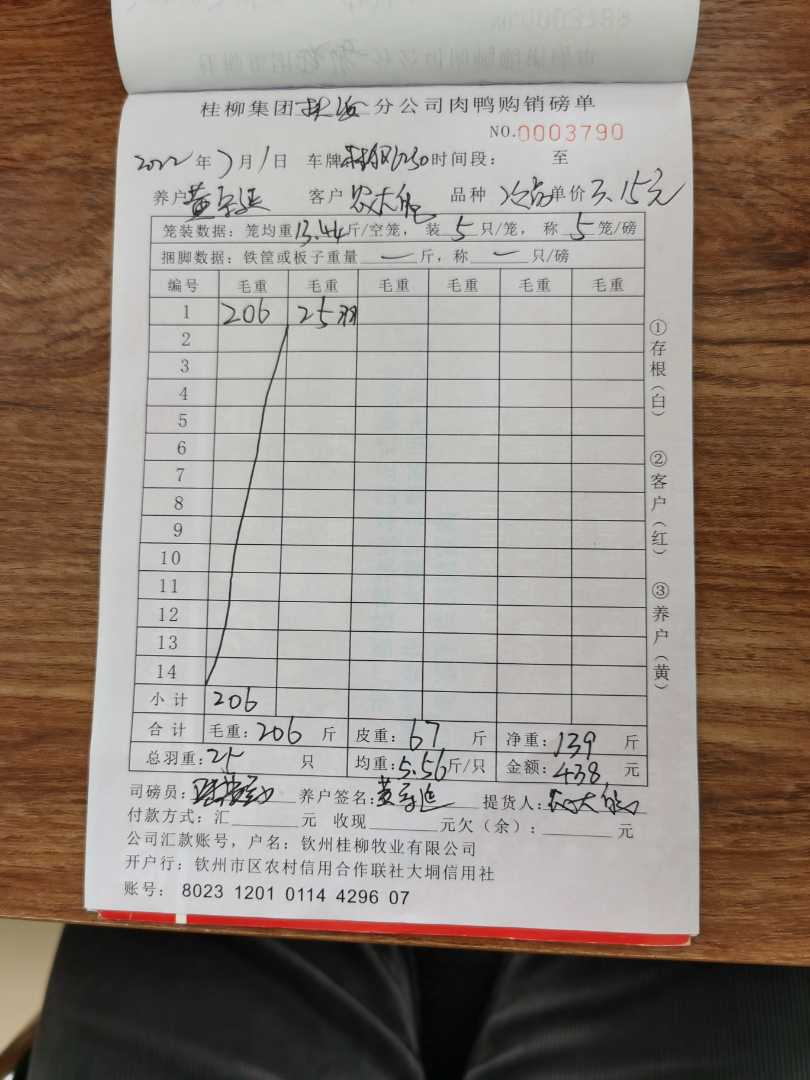 桂柳集团 分公司肉鸭购销磅单
NO.0003790
2022年7月1日 车牌 时间段： 至
养户 黄 客户 农大 品种 单价 3.15元
笼装数据：笼均重13.44斤/空笼，装5只/笼，称5笼/磅
捆脚数据：铁筐或板子重量一斤，称一只/磅
编号 毛重 毛重 毛重 毛重 毛重 毛重
1 206 25羽
2
3
4
5
6
7
8
9
10
11
12
13
14
小计 206
合计 毛重：206斤 皮重：67斤 净重：139斤
总羽重：25只 均重：5.56斤/只 金额：438元
司磅员： 养户签名：黄 提货人：农大
付款方式：汇 元 收现 元欠（余）： 元
公司汇款账号，户名：钦州桂柳牧业有限公司
开户行：钦州市区农村信用合作联社大垌信用社
账号： 8023 1201 0114 4296 07
①存根（白）
②客户（红）
③养户（黄）